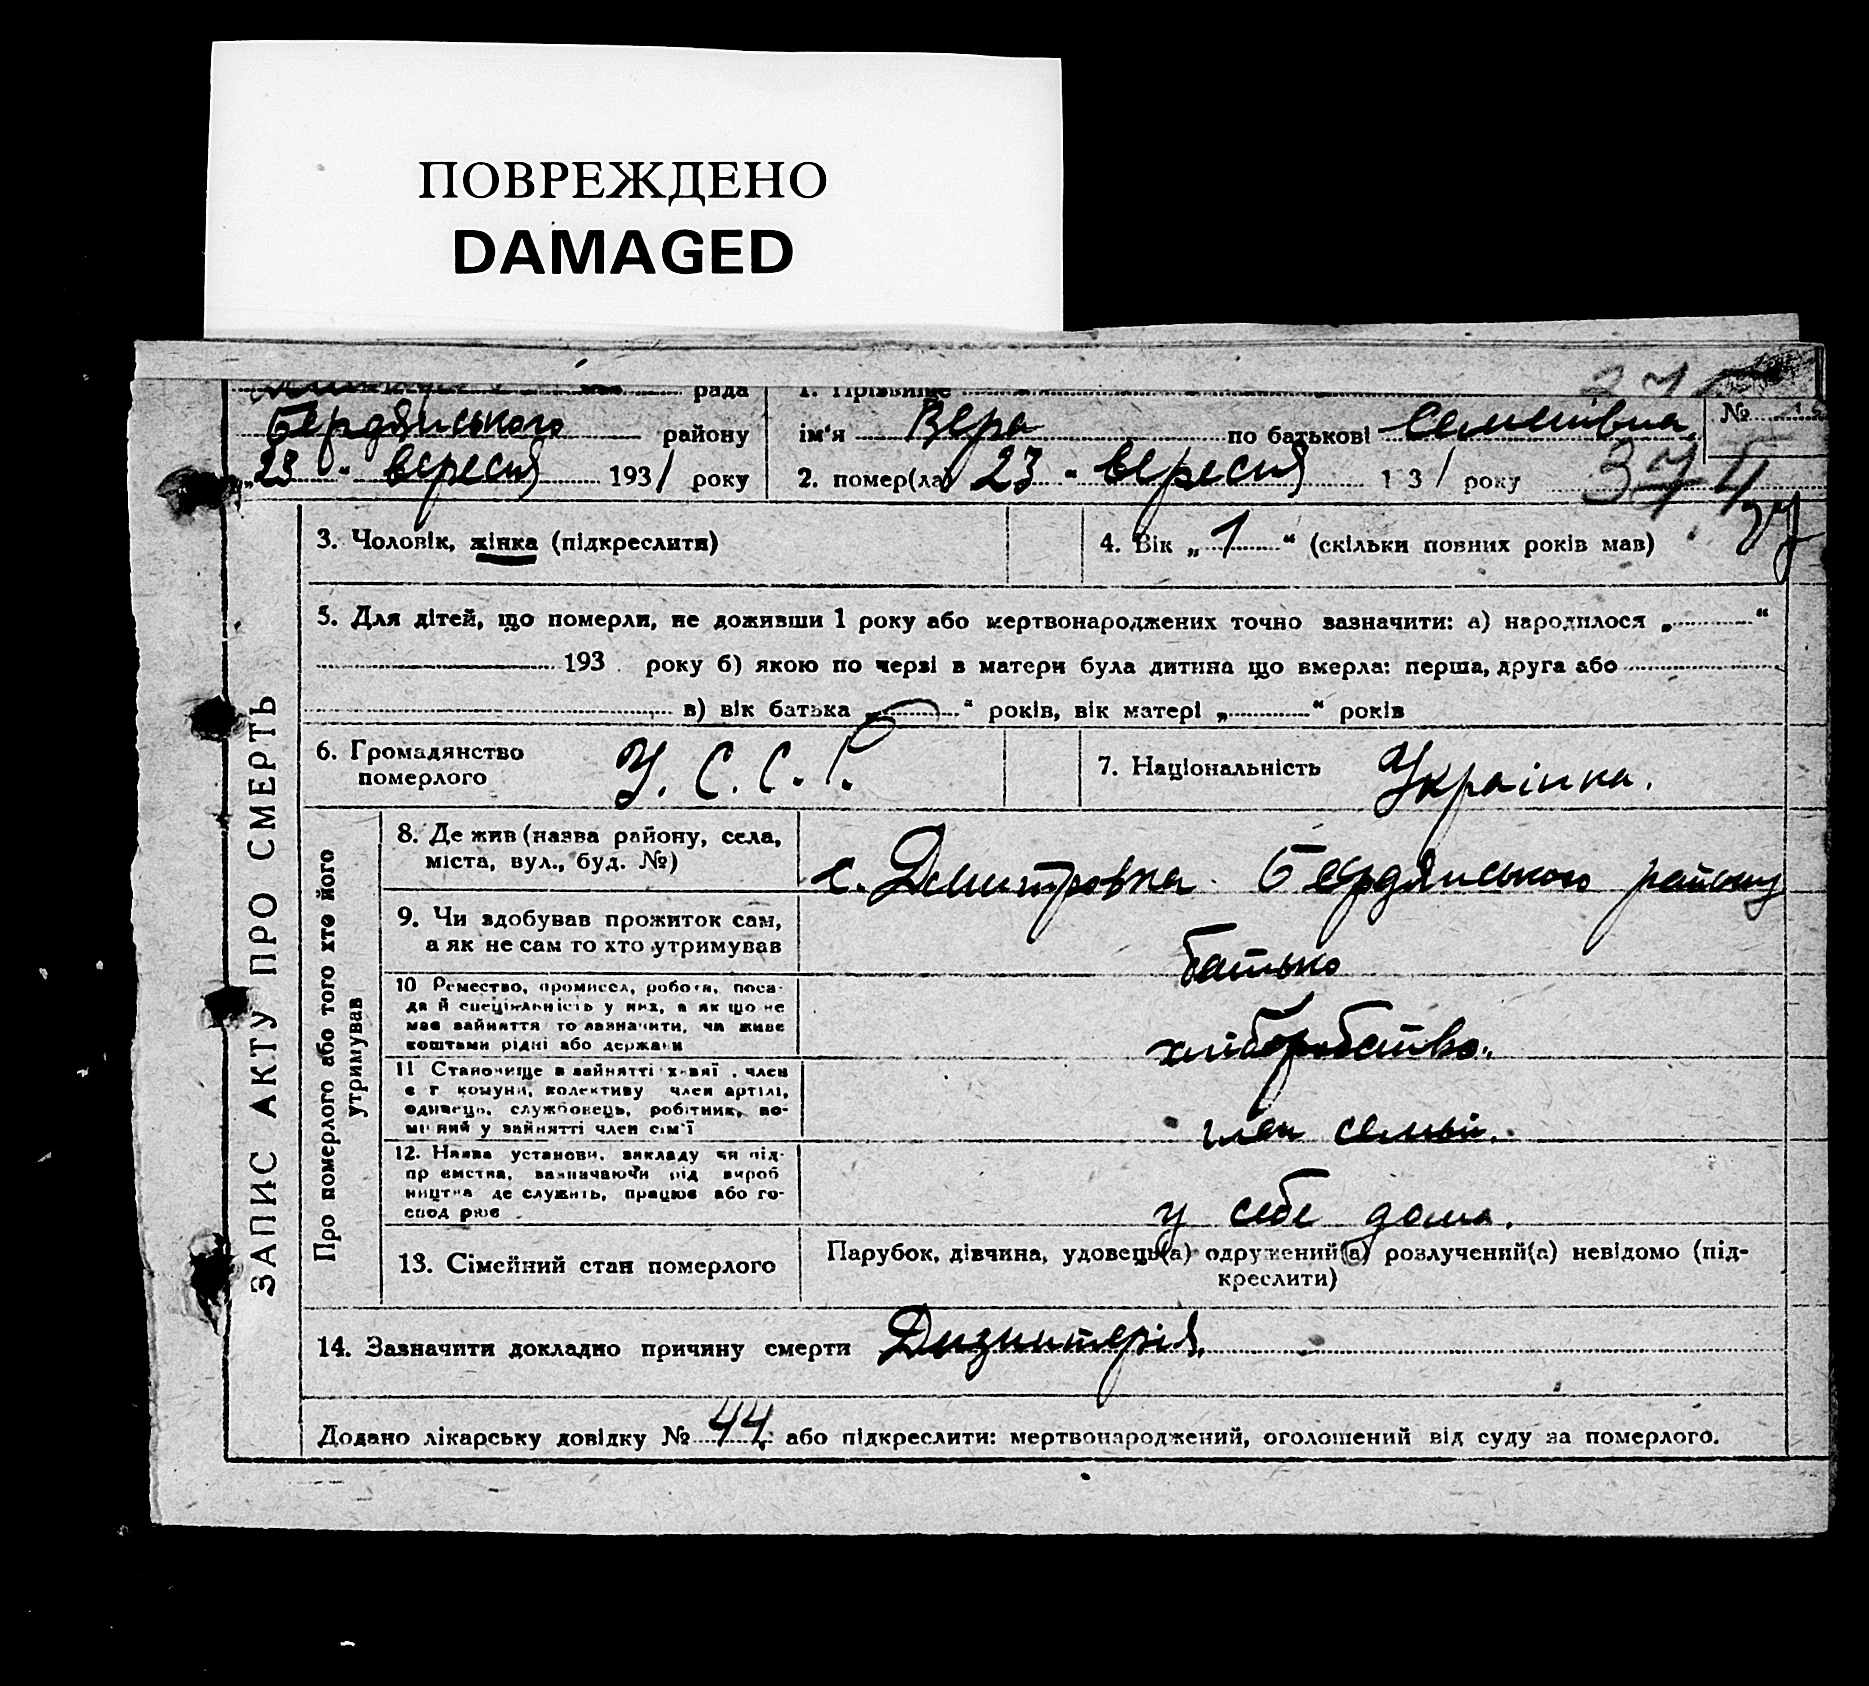 ПОВРЕЖДЕНО
DAMAGED
рада
1. Прізвище
Бердянського району
ім'я Вера по батькові Семенівна
№
„23" вересня 1931 року
2. помер(ла) 23 " вересня 1 3 1 року
374
3. Чоловік, жінка (підкреслити)
4. Вік „1" (скільки повних років мав)
5. Для дітей, що померли, не доживши 1 року або мертвонароджених точно зазначити: а) народилося „ "
193 року б) якою по черзі в матери була дитина що вмерла: перша, друга або
в) вік батька „ " років, вік матері „ " років
6. Громадянство
померлого
У.С.С.Р.
7. Національність Украінка.
ЗАПИС АКТУ ПРО СМЕРТЬ
Про померлого або того хто його
утримував
8. Де жив (назва району, села,
міста, вул., буд. №)
с. Дмитровка Бердянського району
9. Чи здобував прожиток сам,
а як не сам то хто утримував
батько
10 Ремество, промисел, робота, поса-
да й спеціяльність у них, а як що не
має зайняття то зазначити, чи живе
коштами рідні або держави
хліборобство.
11 Становище в зайнятті х-зяї , член
с г комуни, колективу член артілі,
одинець, службовець, робітник, по-
мі ний у зайнятті член сім'ї
член семьи.
12. Назва установи, викладу чи під-
пр ємства, зазначаючи рід вироб
ництва де служить, працює або го-
спод рює
у себе дома.
13. Сімейний стан померлого
Парубок, дівчина, удовець(а) одружений(а) розлучений(а) невідомо (під-
креслити)
14. Зазначити докладно причину смерти Дизинтерія.
Додано лікарську довідку № 44 або підкреслити: мертвонароджений, оголошений від суду за померлого.